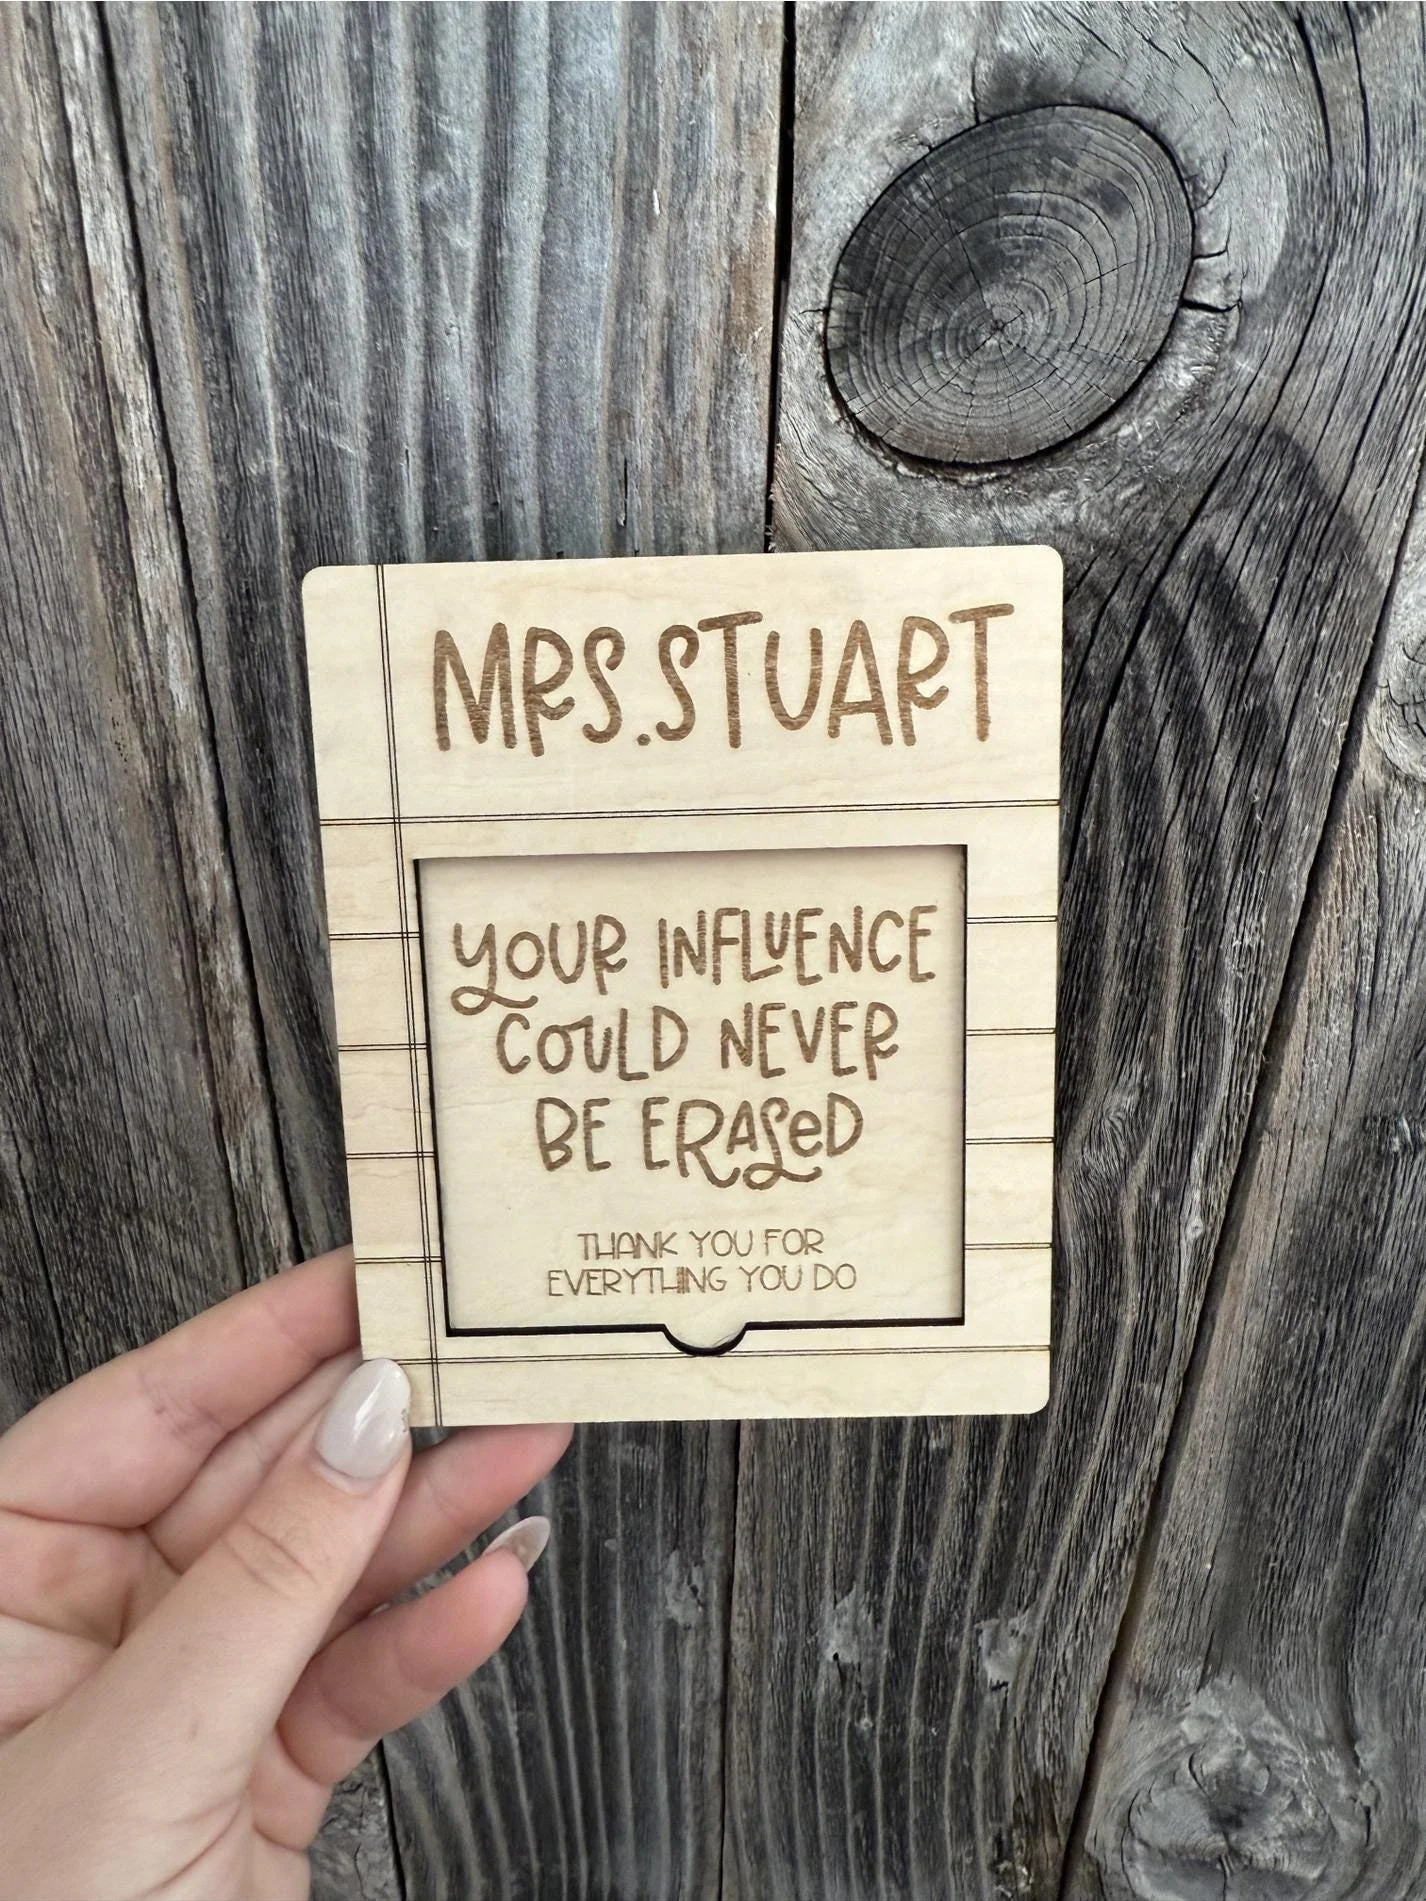 MRS.STUART
YOUR INFLUENCE
COULD NEVER
BE ERASeD
THANK YOU FOR
EVERYTHING YOU DO